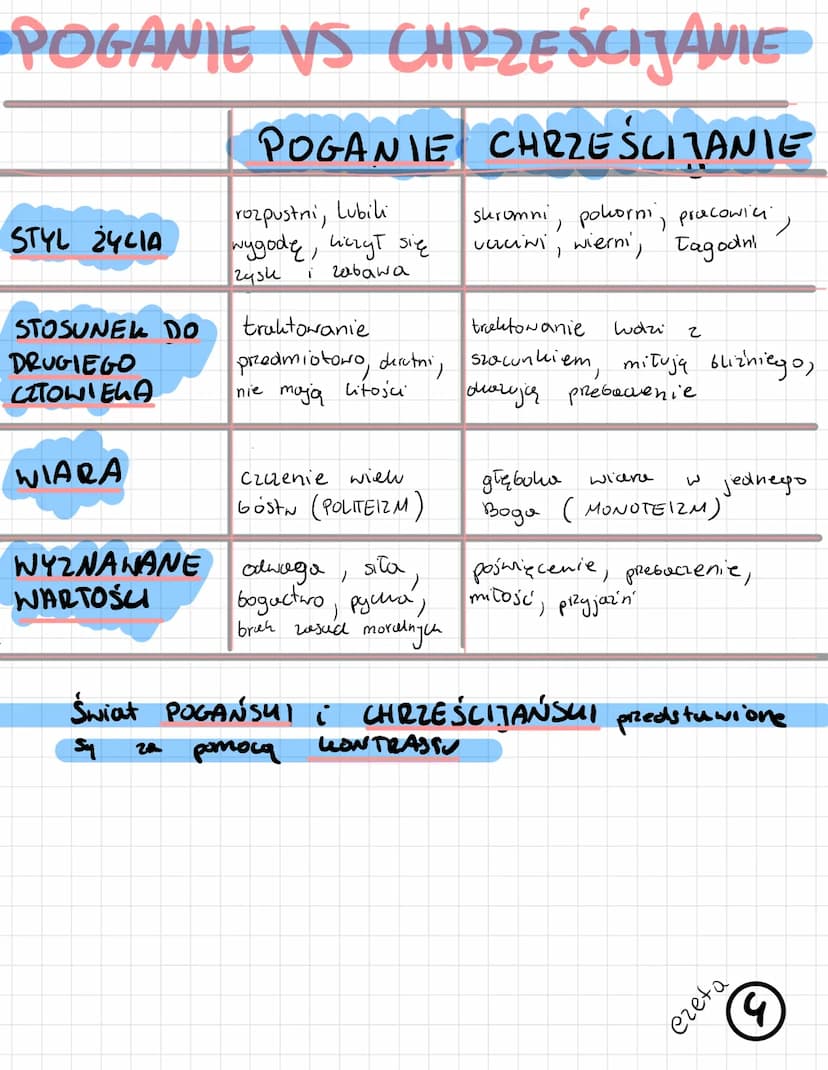 POGANIE VS CHRZEŚCIJANIE
POGANIE
CHRZEŚCIJANIE
STYL ŻYCIA
rozpustni, lubili
wygodę, liczył się
zysk i zabawa
skromni, pokorni, pracowici,
uczciwi, wierni, łagodni
STOSUNEK DO
DRUGIEGO
CZŁOWIEKA
traktowanie
przedmiotowo, okrutni,
nie mają litości
traktowanie ludzi z
szacunkiem, miłują bliźniego,
okazują przebaczenie
WIARA
czczenie wielu
bóstw (POLITEIZM)
głęboka wiara w jednego
Boga (MONOTEIZM)
WYZNAWANE
WARTOŚCI
odwaga, siła,
bogactwo, pycha,
brak zasad moralnych
poświęcenie, przebaczenie,
miłość, przyjaźń
Świat POGAŃSKI i CHRZEŚCIJAŃSKI przedstawione
są za pomocą KONTRASTU
ezeta
4